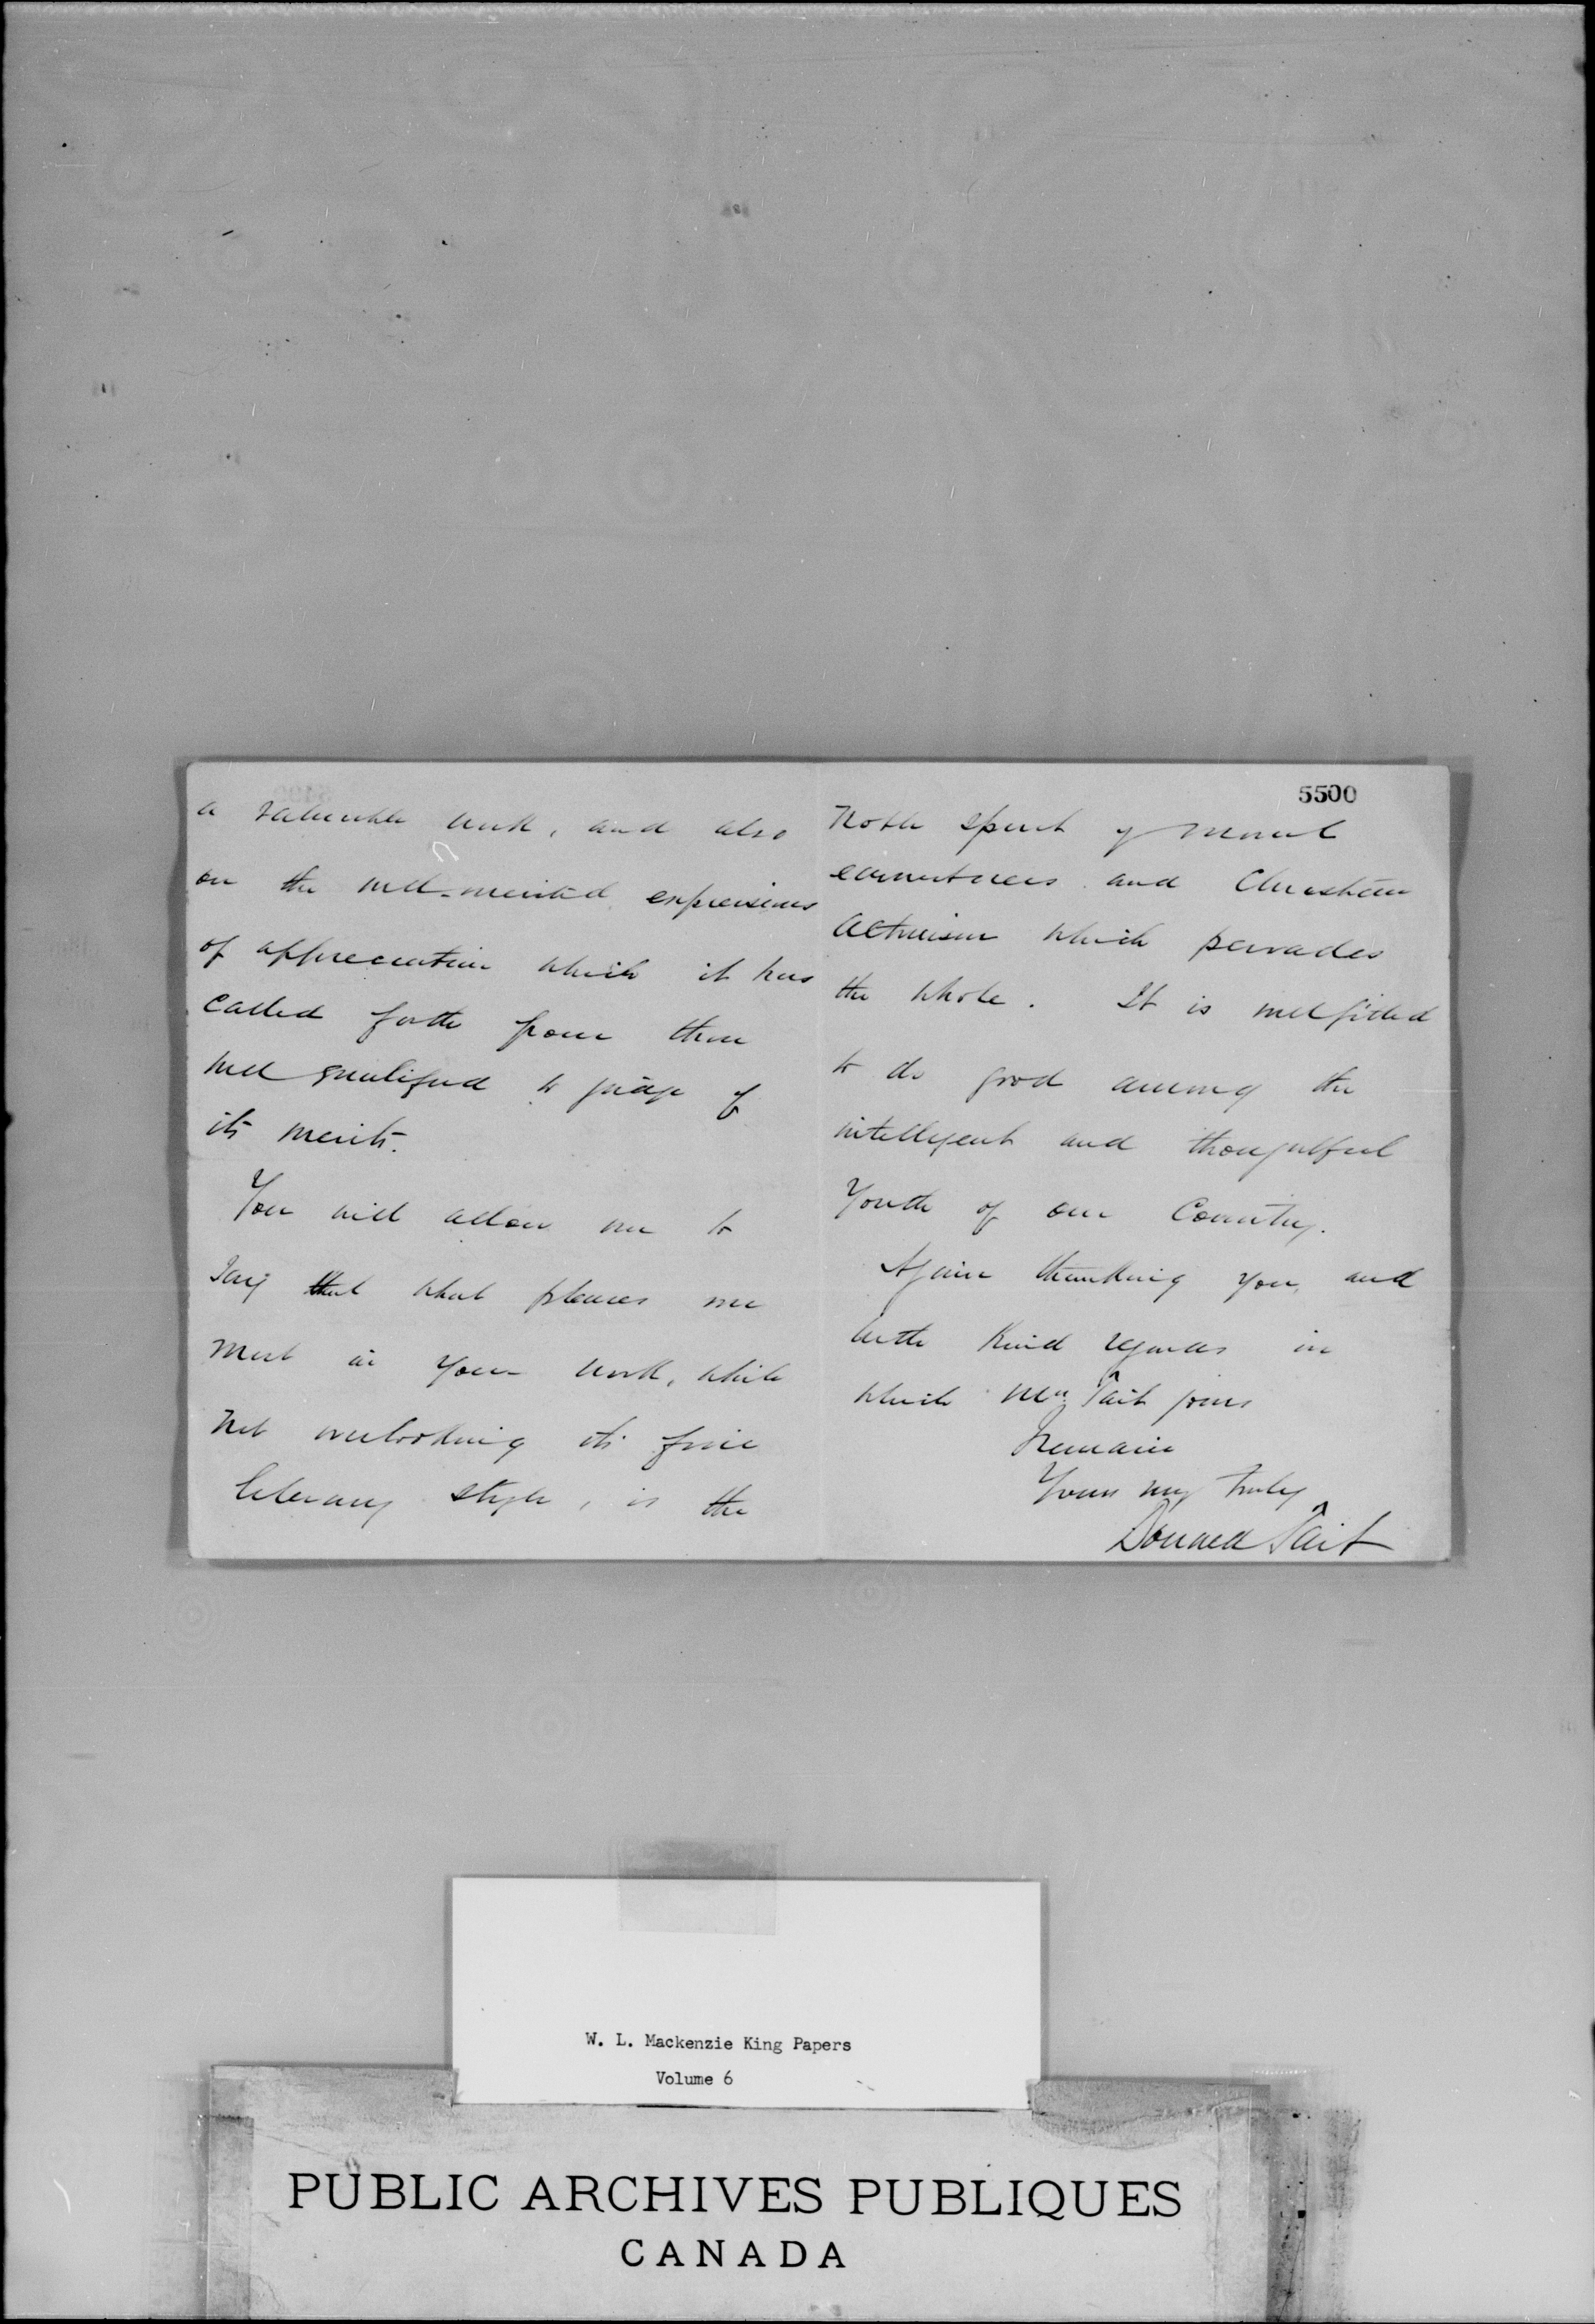 a valuable work, and also
on the well-merited expressions
of appreciation which it has
called forth from those
well qualified to judge of
its merits.
You will allow me to
say that what pleases me
most in your work, while
not overlooking its fine
literary style, is the
5500
noble spirit of moral
earnestness and Christian
altruism which pervades
the whole. It is well fitted
to do good among the
intelligent and thoughtful
youth of our Country.
Again thanking you, and
with kind regards in
which Mrs Tait joins
I remain
Yours very truly
Donald Tait
W. L. Mackenzie King Papers
Volume 6
PUBLIC ARCHIVES PUBLIQUES
CANADA